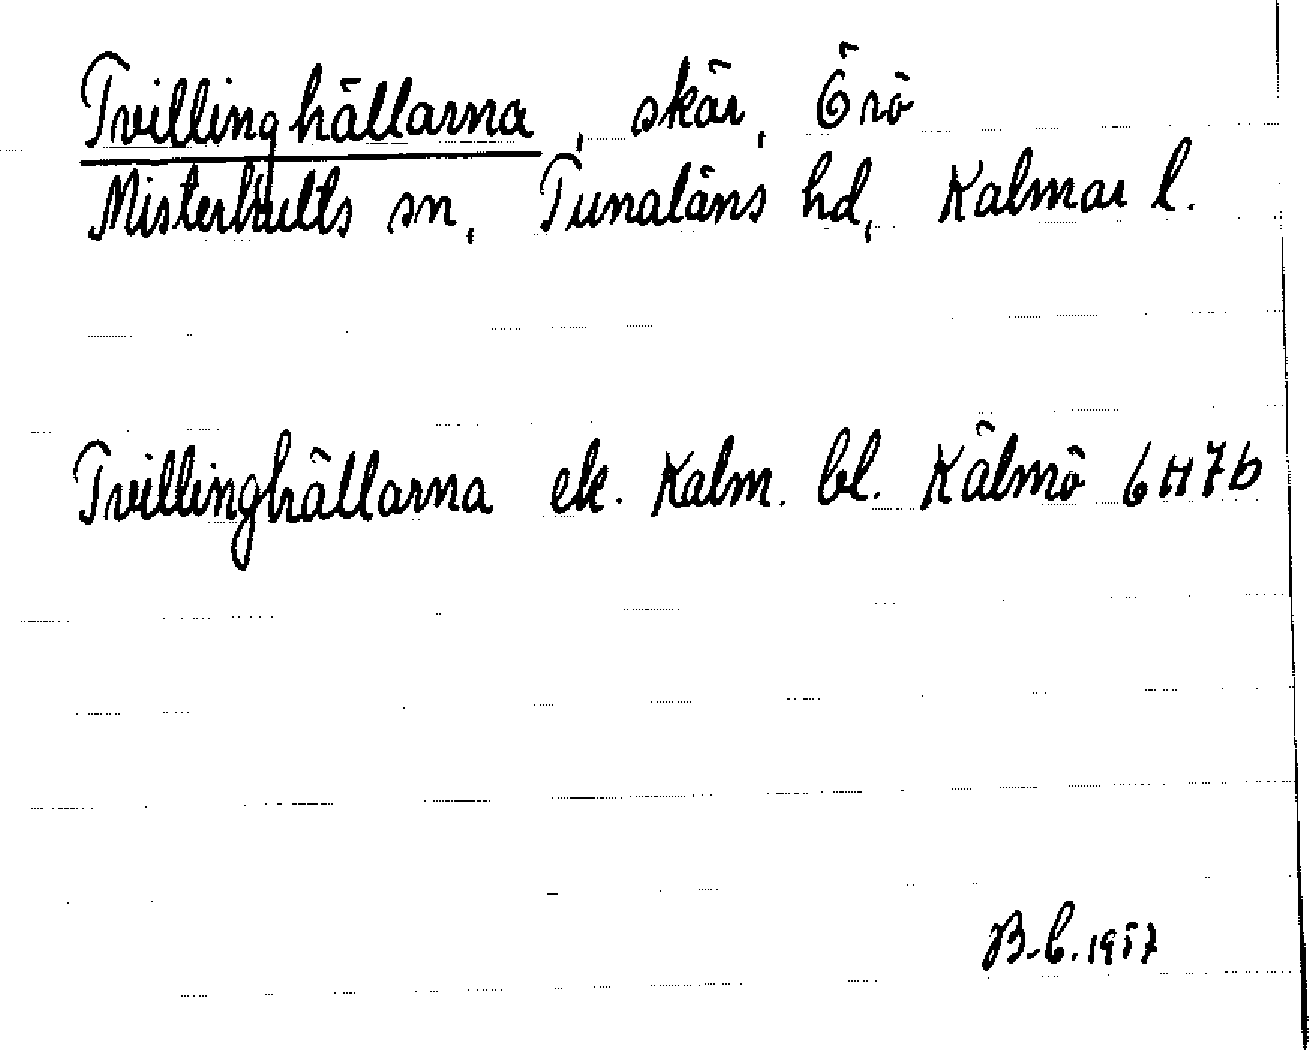 Tvillinghällarna, skär, Örö
Misterhults sn, Tunaläns hd, Kalmar l.
Tvillinghällarna ek. Kalm. bl. Kälmö 6H7b
B-b. 1957